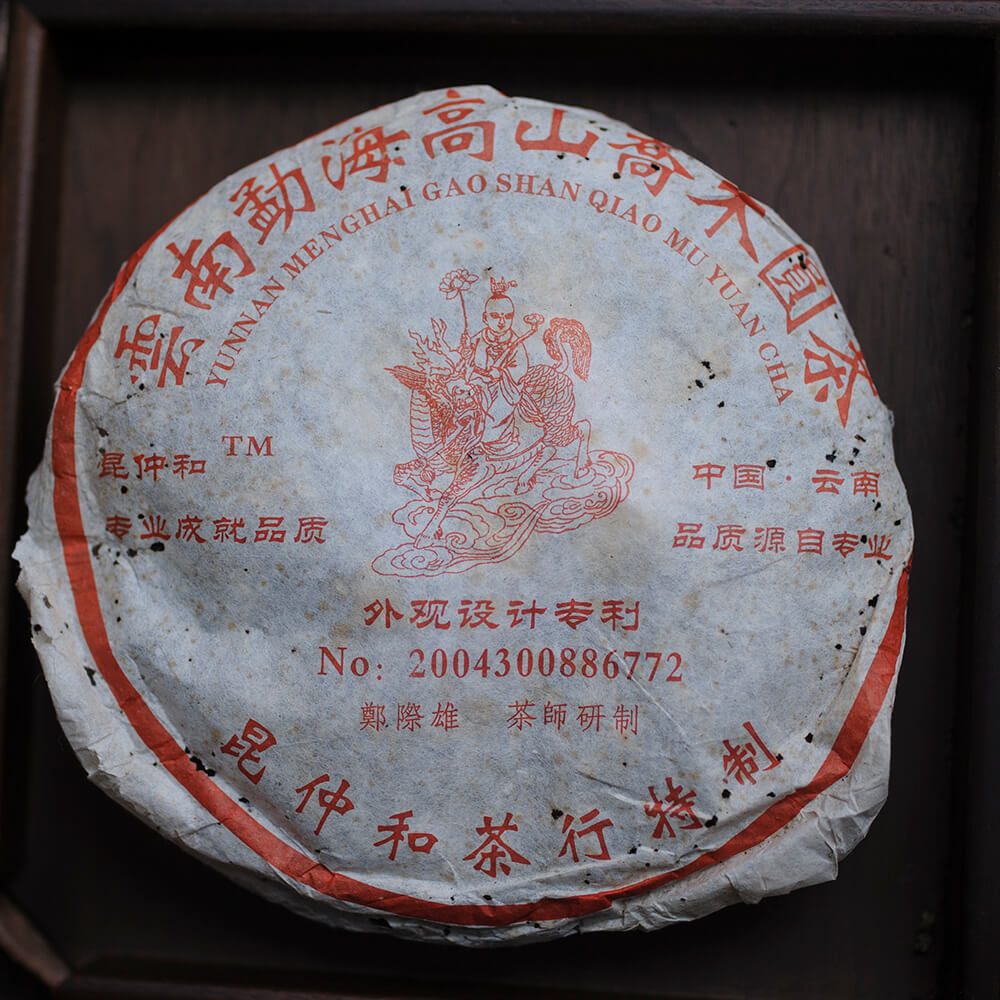 雲南勐海高山喬木圓茶
YUNNAN MENGHAI GAO SHAN QIAO MU YUAN CHA
昆仲和 TM
专业成就品质
中国·云南
品质源自专业
外观设计专利
No: 2004300886772
鄭際雄 茶師研制
昆仲和茶行特制